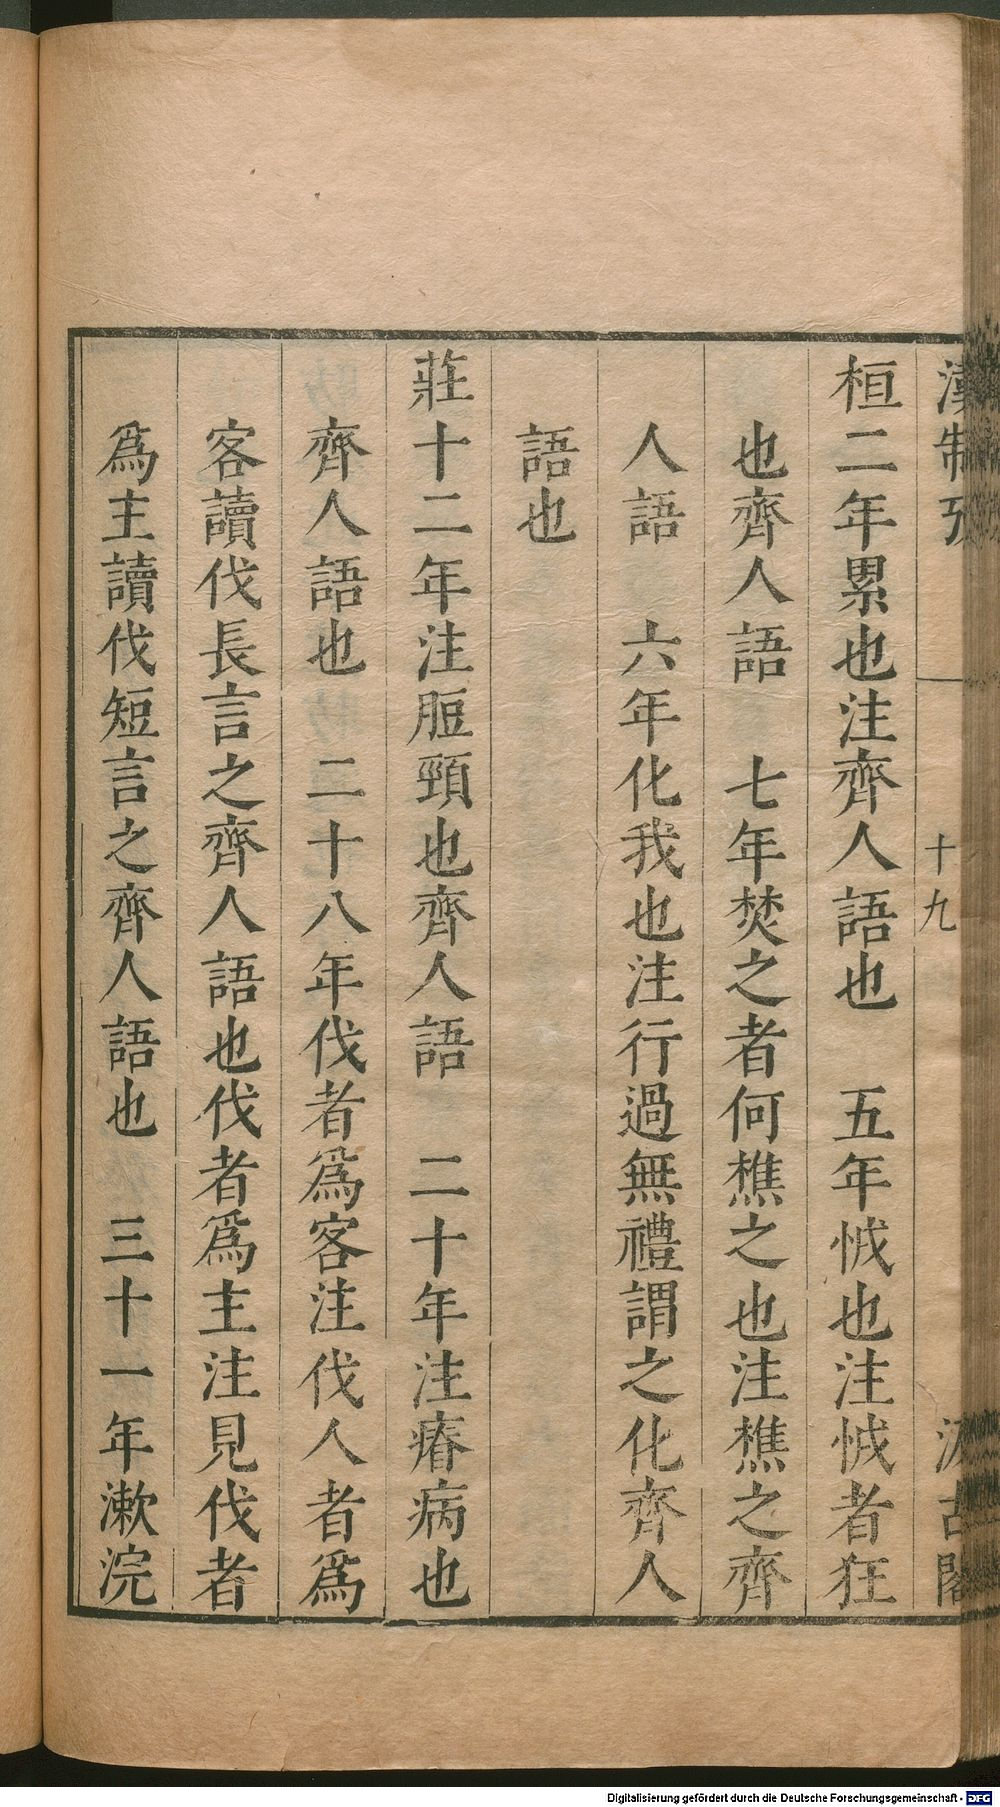 漢制攷
十九
汲古閣
桓二年累也注齊人語也　五年㤜也注㤜者狂
也齊人語　七年焚之者何樵之也注樵之齊
人語　六年化我也注行過無禮謂之化齊人
語也
莊十二年注脰頸也齊人語　二十年注瘠病也
齊人語也　二十八年伐者爲客注伐人者爲
客讀伐長言之齊人語也伐者爲主注見伐者
爲主讀伐短言之齊人語也　三十一年漱浣
Digitalisierung gefördert durch die Deutsche Forschungsgemeinschaft - DFG